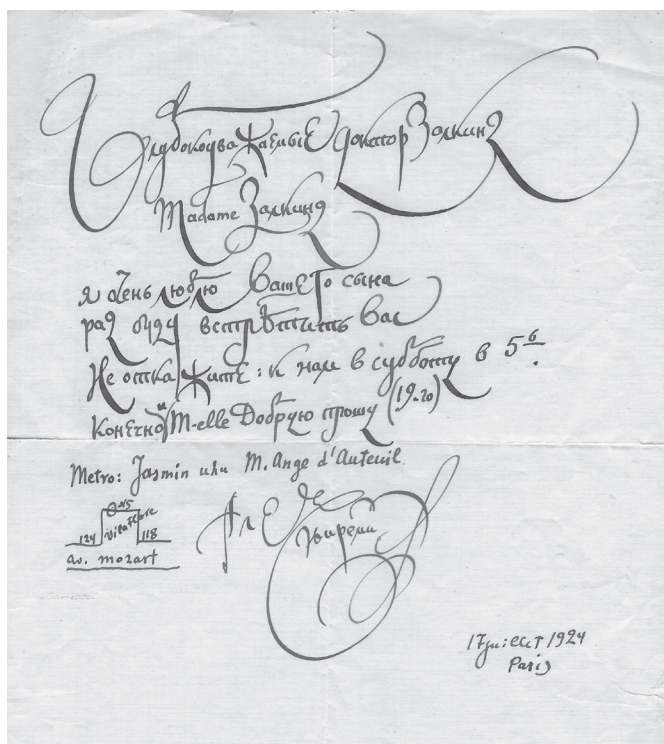 Глубокоуважаемые доктор Залкинд
Madame Залкинд
я очень люблю вашего сына
рад буду встрѣтить вас
Не откажите: к нам в субботу в 5 6
(19-го)
Конечно и M-elle Добрую прошу
Metro: Jasmin или M. Ange d'Auteuil.
124 villa Flore 118
av. mozart
17 juillet 1924
Paris